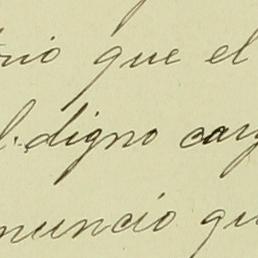 rio que el
l. digno carg
nuncio qu